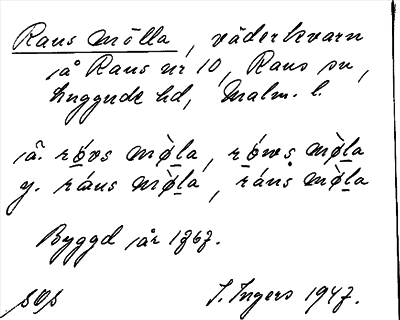 Raus mölla, väderkvarn
på Raus nr 10, Raus sn,
Luggude hd, Malm. l.
iå. rǫ́vs mø̀la, rǫ́ws mø̀la
y. ráus mø̀la, ráus mø̀la
Byggd på år 1767.
I. Ingers 1947.